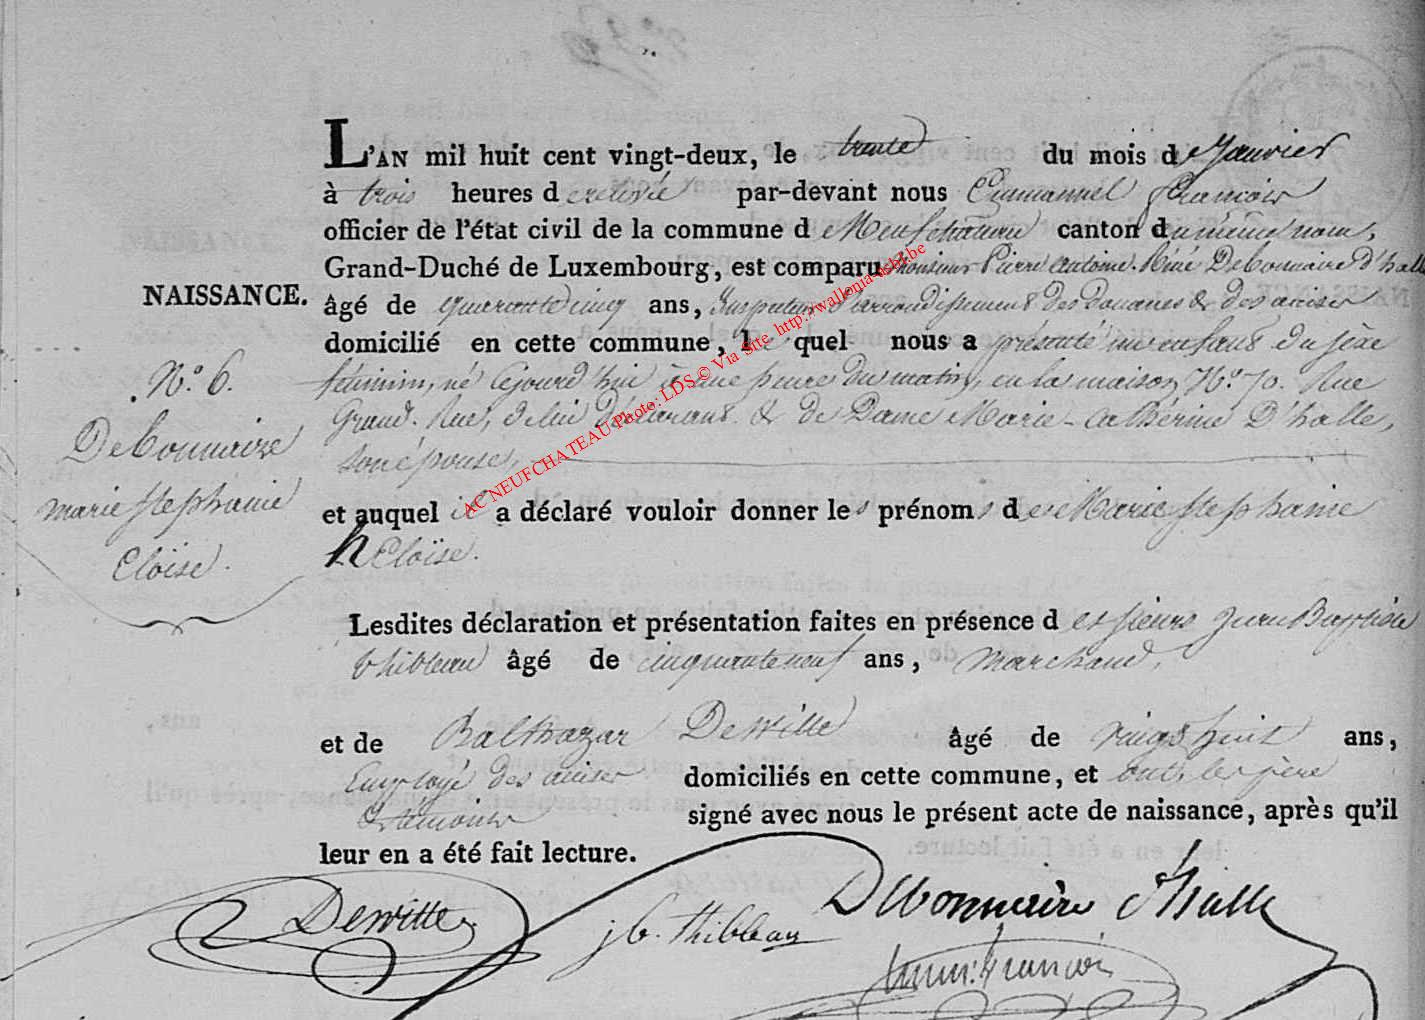 L'AN mil huit cent vingt-deux, le trente du mois de Janvier
à trois heures de relevé par-devant nous Emmanuel François
officier de l'état civil de la commune de Neufchateau canton du même nom,
Grand-Duché de Luxembourg, est comparu Monsieur Pierre Antoine Réné Debonnaire d'halle
NAISSANCE.
âgé de quarante cinq ans, Inspecteur d'arrondissement des Douanes & des accises
domicilié en cette commune, le quel nous a présenté un enfant du sèxe
N.° 6.
féminin, né cejourd'hui à une heure du matin, en la maison N.° 70. Rue
Grand-Rue, de lui déclarant & de Dame Marie-Cathérine D'halle,
Debonnaire
son épouse,
marie stephanie
et auquel il a déclaré vouloir donner les prénoms de Marie Stephanie
Eloïse.
hEloïse.
Lesdites déclaration et présentation faites en présence des sieurs Jean Baptiste
thibleau âgé de cinquante neuf ans, marchand,
et de Balthazar Dewitte âgé de vingt huit ans,
Employé des accises domiciliés en cette commune, et ont, les père
& témoins signé avec nous le présent acte de naissance, après qu'il
leur en a été fait lecture.
Dewitte j b. thibleau Debonnaire d'halle
Emm: François
AC NEUFCHATEAU Photo: LDS © Via Site http://wallonia-asbl.be